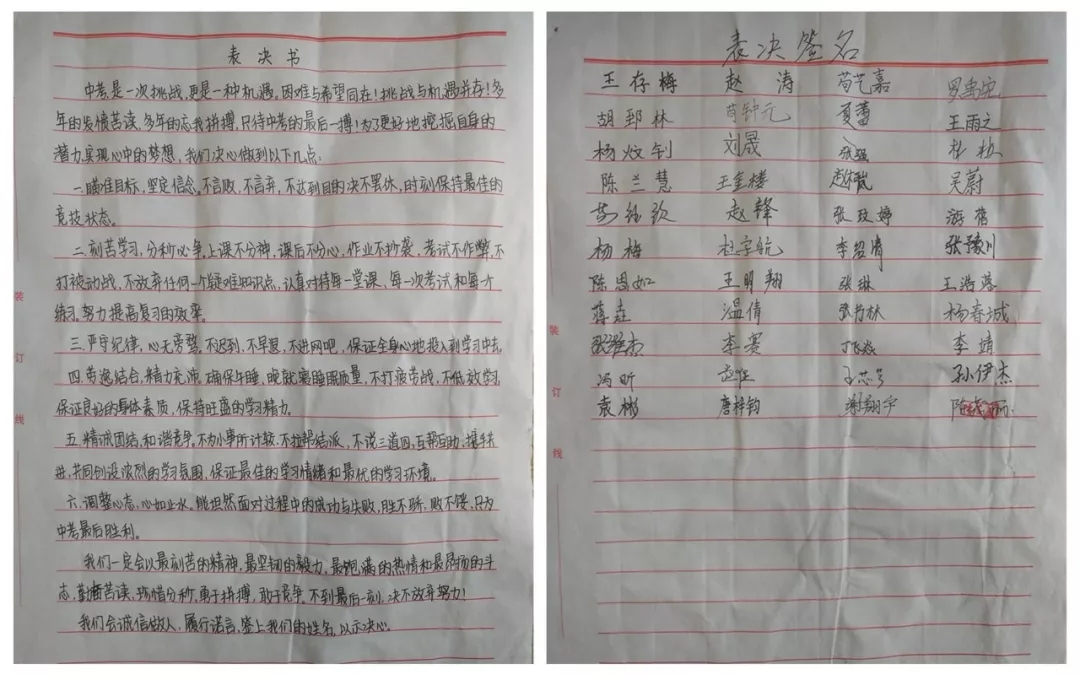 表决书
中考是一次挑战,更是一种机遇,困难与希望同在!挑战与机遇并存!多
年的发愤苦读,多年的忘我拼搏,只待中考的最后一搏!为了更好地挖掘自身的
潜力,实现心中的梦想,我们决心做到以下几点:
一.瞄准目标,坚定信念。不言败,不言弃,不达到目的决不罢休,时刻保持最佳的
竞技状态。
二.刻苦学习,分秒必争。上课不分神,课后不分心,作业不抄袭,考试不作弊,不
打被动战,不放弃任何一个疑难知识点,认真对待每一堂课、每一次考试和每一个
练习,努力提高复习的效率。
三.严守纪律,心无旁骛。不迟到,不早退,不进网吧,保证全身心地投入到学习中去。
四.劳逸结合,精力充沛。确保午睡,晚就寝睡眠质量,不打疲劳战,不低效学习,
保证良好的身体素质,保持旺盛的学习精力。
五.精诚团结,和谐竞争。不为小事所计较,不拉帮结派,不说三道四,互帮互助,携手共
进,共同创设浓烈的学习氛围,保证最佳的学习情绪和最优的学习环境。
六.调整心态,心如止水。能坦然面对过程中的成功与失败,胜不骄,败不馁,只为
中考最后胜利。
我们一定会以最刻苦的精神,最坚韧的毅力,最饱满的热情和最昂扬的斗
志,勤奋苦读,珍惜分秒,勇于拼搏,敢于竞争,不到最后一刻,决不放弃努力!
我们会诚信做人,履行诺言,签上我们的姓名,以示决心。
装
订
线
表决签名
王存梅 赵涛 苟艺嘉
胡郅林 苟钟元 夏蕾 王雨之
杨炆钊 刘晟 张强 杜松
陈兰慧 王奎楼 吴蔚
赵锋 张玟婷 游蓓
杨梅 杜宇航 李绍清 张豫川
陈思如 王明翔 张琳 王浩蓉
蒋垚 温倩 杨春城
李赛 李靖
冯昕 孙伊杰
袁彬 唐梓钧 谢翔宇
装
订
线